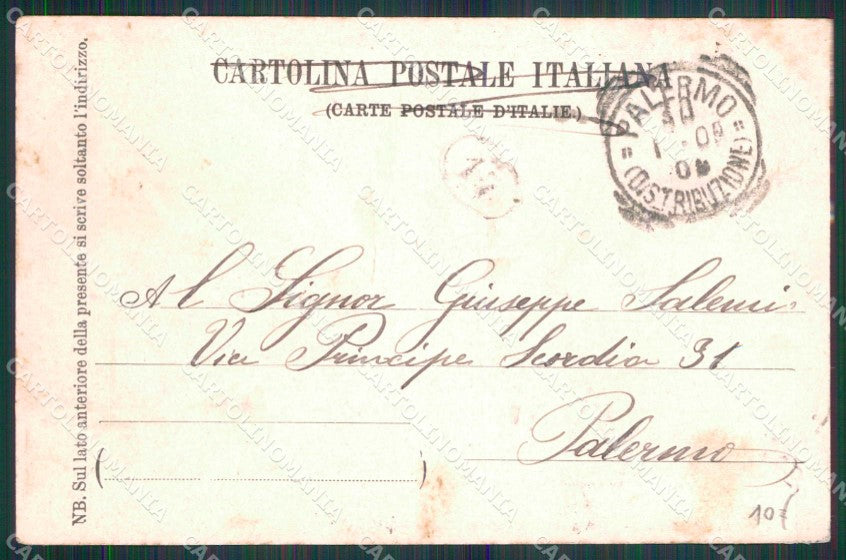 CARTOLINA POSTALE ITALIANA
(CARTE POSTALE D'ITALIE.)
PALERMO
(DISTRIBUZIONE)
Al Signor Giuseppe Salemi
Via Principe Scordia 31
Palermo
NB. Sul lato anteriore della presente si scrive soltanto l'indirizzo.
10
CARTOLINOMANIA